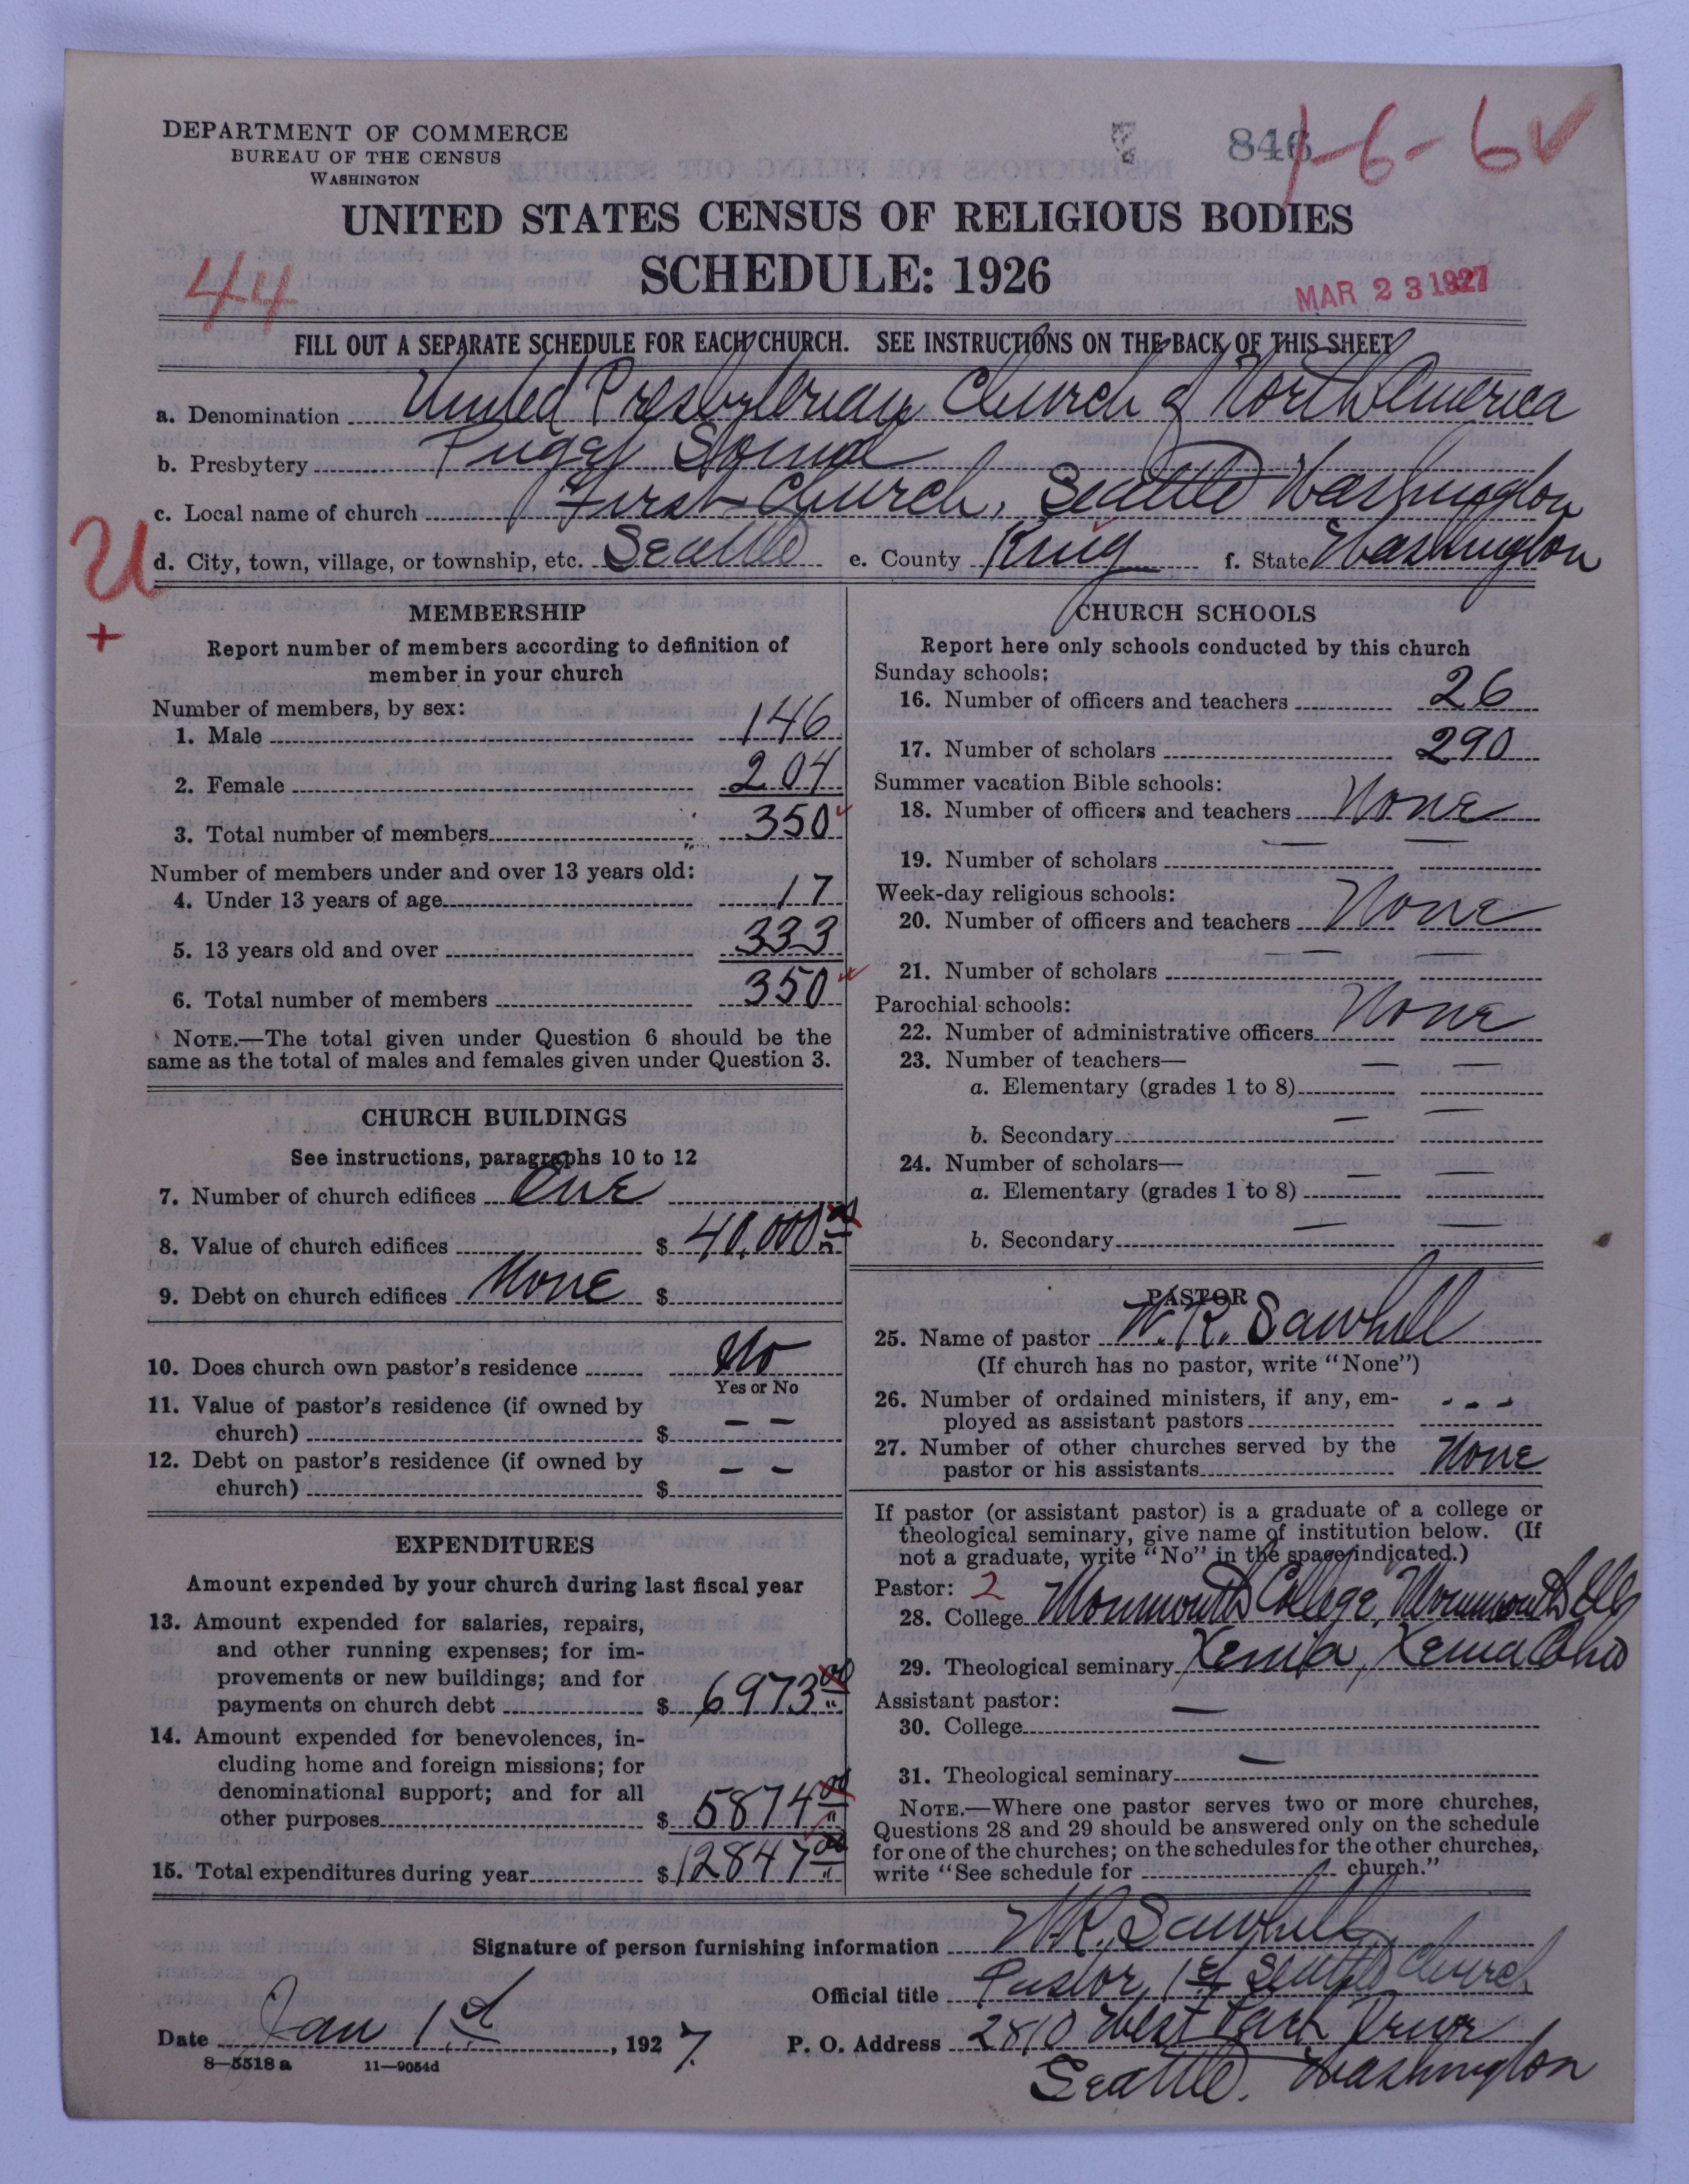 DEPARTMENT OF COMMERCE
BUREAU OF THE CENSUS
WASHINGTON
846
1-6-6 ✓
UNITED STATES CENSUS OF RELIGIOUS BODIES
SCHEDULE: 1926
44
MAR 23 1927
FILL OUT A SEPARATE SCHEDULE FOR EACH CHURCH. SEE INSTRUCTIONS ON THE BACK OF THIS SHEET
a. Denomination United Presbyterian Church of North America
b. Presbytery Puget Sound
c. Local name of church First Church, Seattle Washington
U
d. City, town, village, or township, etc. Seattle e. County King f. State Washington
+
MEMBERSHIP
Report number of members according to definition of
member in your church
Number of members, by sex:
1. Male 146
2. Female 204
3. Total number of members 350
Number of members under and over 13 years old:
4. Under 13 years of age 17
5. 13 years old and over 333
6. Total number of members 350
NOTE.—The total given under Question 6 should be the
same as the total of males and females given under Question 3.
CHURCH BUILDINGS
See instructions, paragraphs 10 to 12
7. Number of church edifices One
8. Value of church edifices $ 40,000 00
9. Debt on church edifices None $
10. Does church own pastor's residence No
Yes or No
11. Value of pastor's residence (if owned by
church) $ – –
12. Debt on pastor's residence (if owned by
church) $ – –
EXPENDITURES
Amount expended by your church during last fiscal year
13. Amount expended for salaries, repairs,
and other running expenses; for im-
provements or new buildings; and for
payments on church debt $ 6973 00
14. Amount expended for benevolences, in-
cluding home and foreign missions; for
denominational support; and for all
other purposes $ 5874 00
15. Total expenditures during year $ 12847 00
CHURCH SCHOOLS
Report here only schools conducted by this church
Sunday schools:
16. Number of officers and teachers 26
17. Number of scholars 290
Summer vacation Bible schools:
18. Number of officers and teachers None
19. Number of scholars — —
Week-day religious schools:
20. Number of officers and teachers None
21. Number of scholars — —
Parochial schools:
22. Number of administrative officers None
23. Number of teachers—
a. Elementary (grades 1 to 8) — —
b. Secondary — —
24. Number of scholars—
a. Elementary (grades 1 to 8) — —
b. Secondary — —
PASTOR
25. Name of pastor W. R. Sawhill
(If church has no pastor, write "None")
26. Number of ordained ministers, if any, em-
ployed as assistant pastors - - -
27. Number of other churches served by the
pastor or his assistants None
If pastor (or assistant pastor) is a graduate of a college or
theological seminary, give name of institution below. (If
not a graduate, write "No" in the space indicated.)
Pastor: 2
28. College Monmouth College, Monmouth Ills
29. Theological seminary Xenia, Xenia Ohio
Assistant pastor:
30. College —
31. Theological seminary —
NOTE.—Where one pastor serves two or more churches,
Questions 28 and 29 should be answered only on the schedule
for one of the churches; on the schedules for the other churches,
write "See schedule for church."
Signature of person furnishing information W. R. Sawhill
Official title Pastor, 1st Seattle Church
Date Jan 1st, 1927 P. O. Address 2810 West Park Drive
8—5518 a 11—9054d
Seattle, Washington